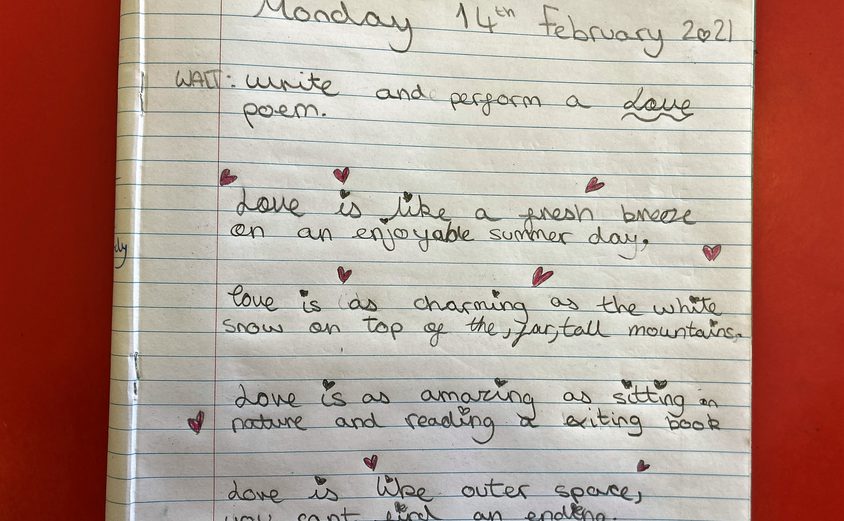 Monday 14th February 2021
WALT: write and perform a Love
poem.
Love is like a fresh breeze
on an enjoyable summer day,
love is as charming as the white
snow on top of the, far, tall mountains.
Love is as amazing as sitting in
nature and reading a exiting book
Love is like outer space,
you cant find an ending.